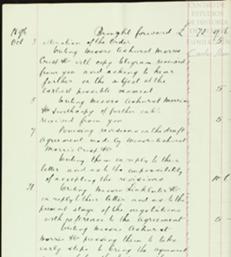 1896 Brought forward £ 72
Oct 3 alteration of the Order
Writing Messrs Ashurst Morris
Crisp &Co with copy telegram received
from you and asking to hear
further on the subject at the
earliest possible moment 5
5 Writing Messrs Ashurst Morris
&Co with copy of further cable
received from you 5
7 Perusing revisions in the draft
Agreement made by Messrs Ashurst
Morris Crisp &Co
Writing them in reply to their
letter and as to the impossibility
of accepting the revisions
Writing Messrs Linklater &Co
in reply to their letter and as to the
present stage of the negotiations
with reference to the Agreement
Writing Messrs Ashurst
Morris &Co pressing them to take
early steps to bring the Agreement